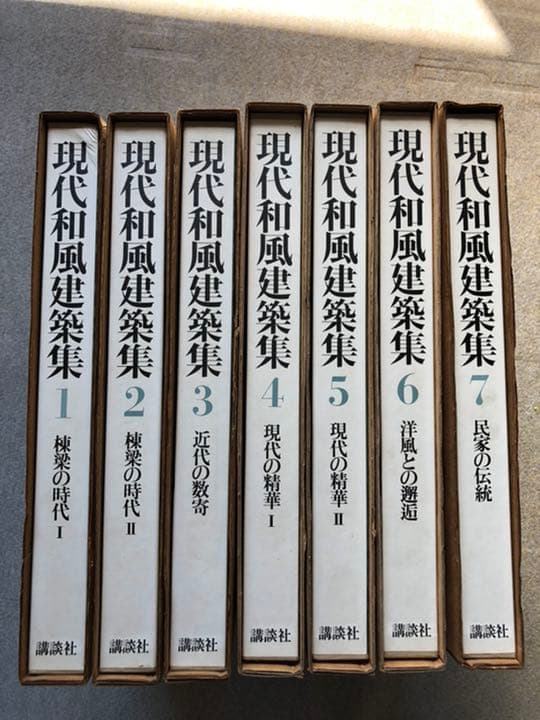 現代和風建築集
1
棟梁の時代 I
講談社
現代和風建築集
2
棟梁の時代 II
講談社
現代和風建築集
3
近代の数寄
講談社
現代和風建築集
4
現代の精華 I
講談社
現代和風建築集
5
現代の精華 II
講談社
現代和風建築集
6
洋風との邂逅
講談社
現代和風建築集
7
民家の伝統
講談社